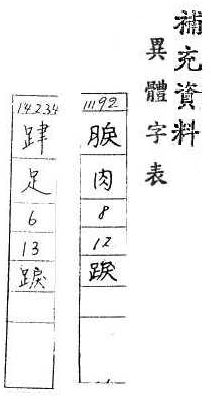 補充資料
異體字表
11192
脵
肉
8
12
踙
14234
踂
足
6
13
踙